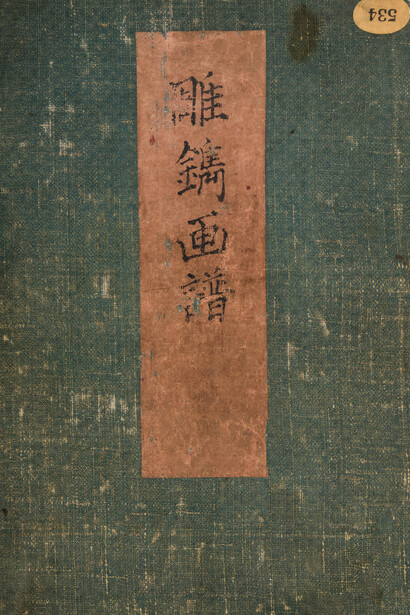 雕鐫画譜
534